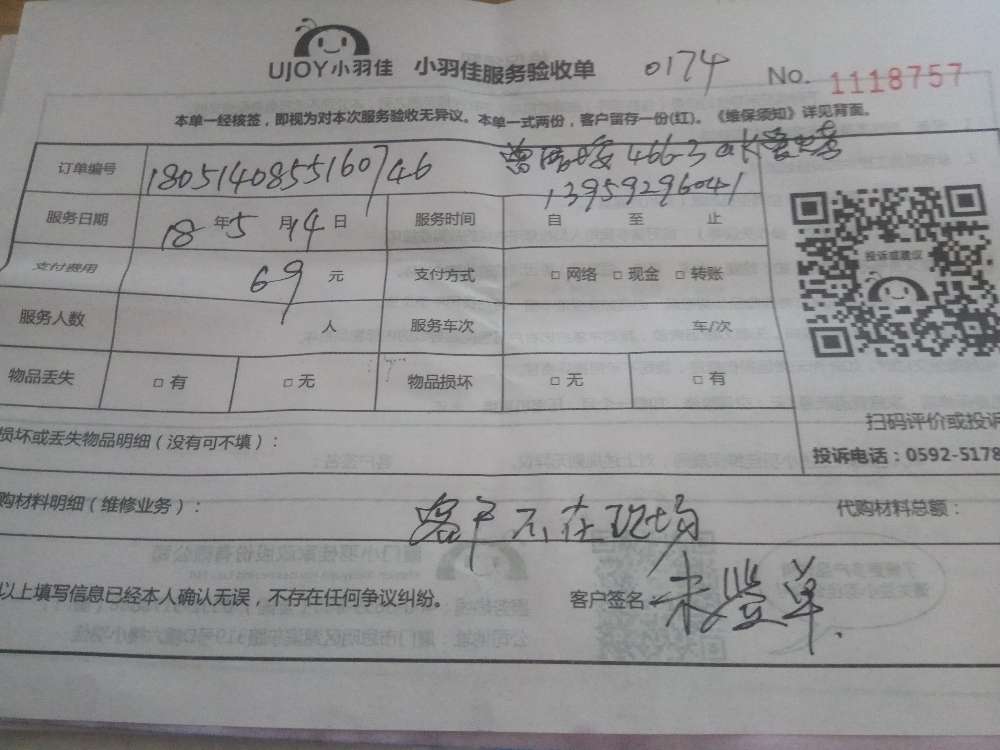 UJOY小羽佳 小羽佳服务验收单 0174 No. 1118757
本单一经核签，即视为对本次服务验收无异议。本单一式两份，客户留存一份(红)。《维保须知》详见背面。
订单编号 1805140855160746 466-3
13959296041
服务日期 18年5月14日 服务时间 自 至 止
支付费用 69 元 支付方式 □网络 □现金 □转账
投诉或建议
服务人数 人 服务车次 车/次
物品丢失 □有 □无 物品损坏 □无 □有
扫码评价或投诉
损坏或丢失物品明细（没有可不填）：
投诉电话：0592-5178
购材料明细（维修业务）： 客户不在现场 代购材料总额：
以上填写信息已经本人确认无误，不存在任何争议纠纷。 客户签名： 未签单.